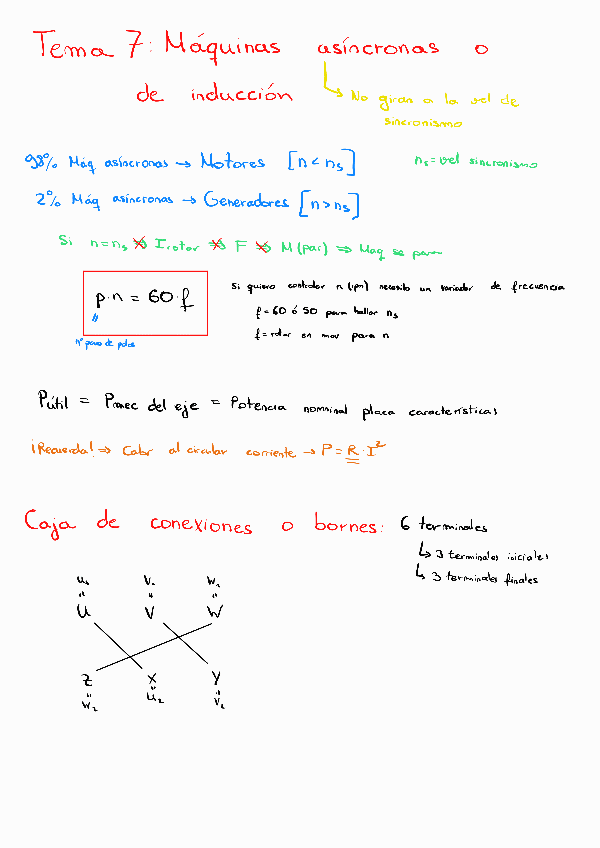 Tema 7: Máquinas asíncronas o
de inducción
↳ No giran a la vel de
sincronismo
98% Máq asíncronas → Motores [n < ns]
ns = vel sincronismo
2% Máq asíncronas → Generadores [n > ns]
Si n = ns ⇏ I rotor ⇏ F ⇏ M (par) ⇒ Maq se para
p·n = 60·f
nº pares de polos
Si quiero controlar n (rpm) necesito un variador de frecuencia
f = 60 ó 50 para hallar ns
f = rotor en mov para n
Pútil = Pmec del eje = Potencia nomninal placa características
¡Recuerda! ⇒ Calor al circular corriente → P = R·I²
Caja de conexiones o bornes: 6 terminales
↳ 3 terminales iniciales
↳ 3 terminales finales
U₁ V₁ W₁
" " "
U V W
Z X Y
" " "
W₂ U₂ V₂